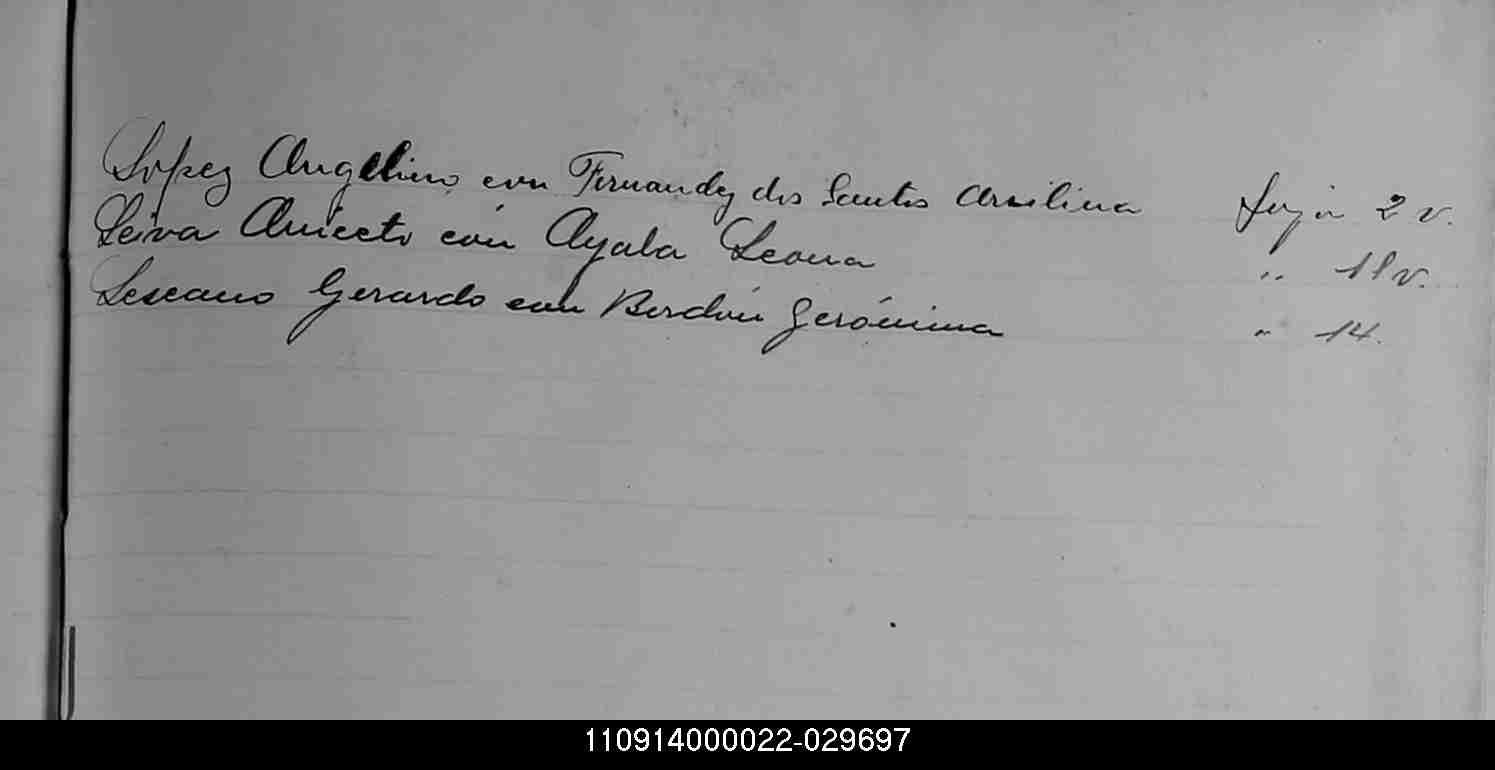 López Angelino con Fernandez dos Santos Arsilina foja 2 v.
Leiva Aniceto con Ayala Leona " 11 v.
Lescano Gerardo con Bordón Gerónima " 14.
110914000022-029697